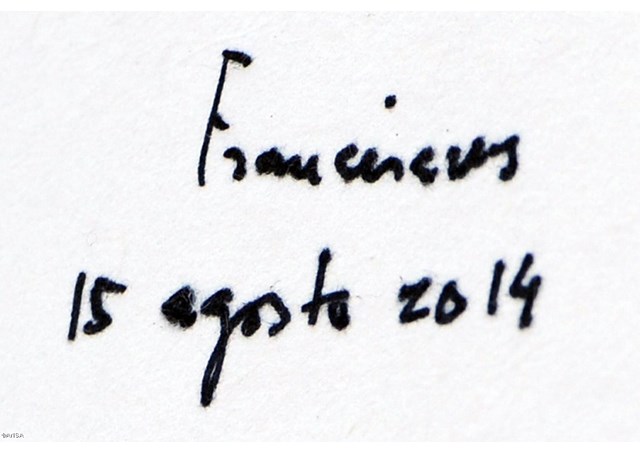 Franciscus
15 agosto 2014
©ANSA